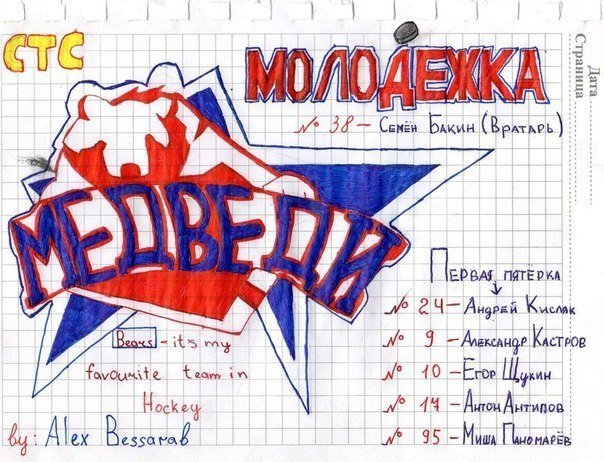 СТС
МОЛОДЕЖКА
№ 38 – Семён Бакин (Вратарь)
Дата
Страница
МЕДВЕДИ
Первая пятёрка
№ 24 – Андрей Кисляк
№ 9 – Александр Кастров
№ 10 – Егор Щукин
№ 14 – Антон Антипов
№ 95 – Миша Паномарёв
Bears – it's my
favourite team in
Hockey
by: Alex Bessarab